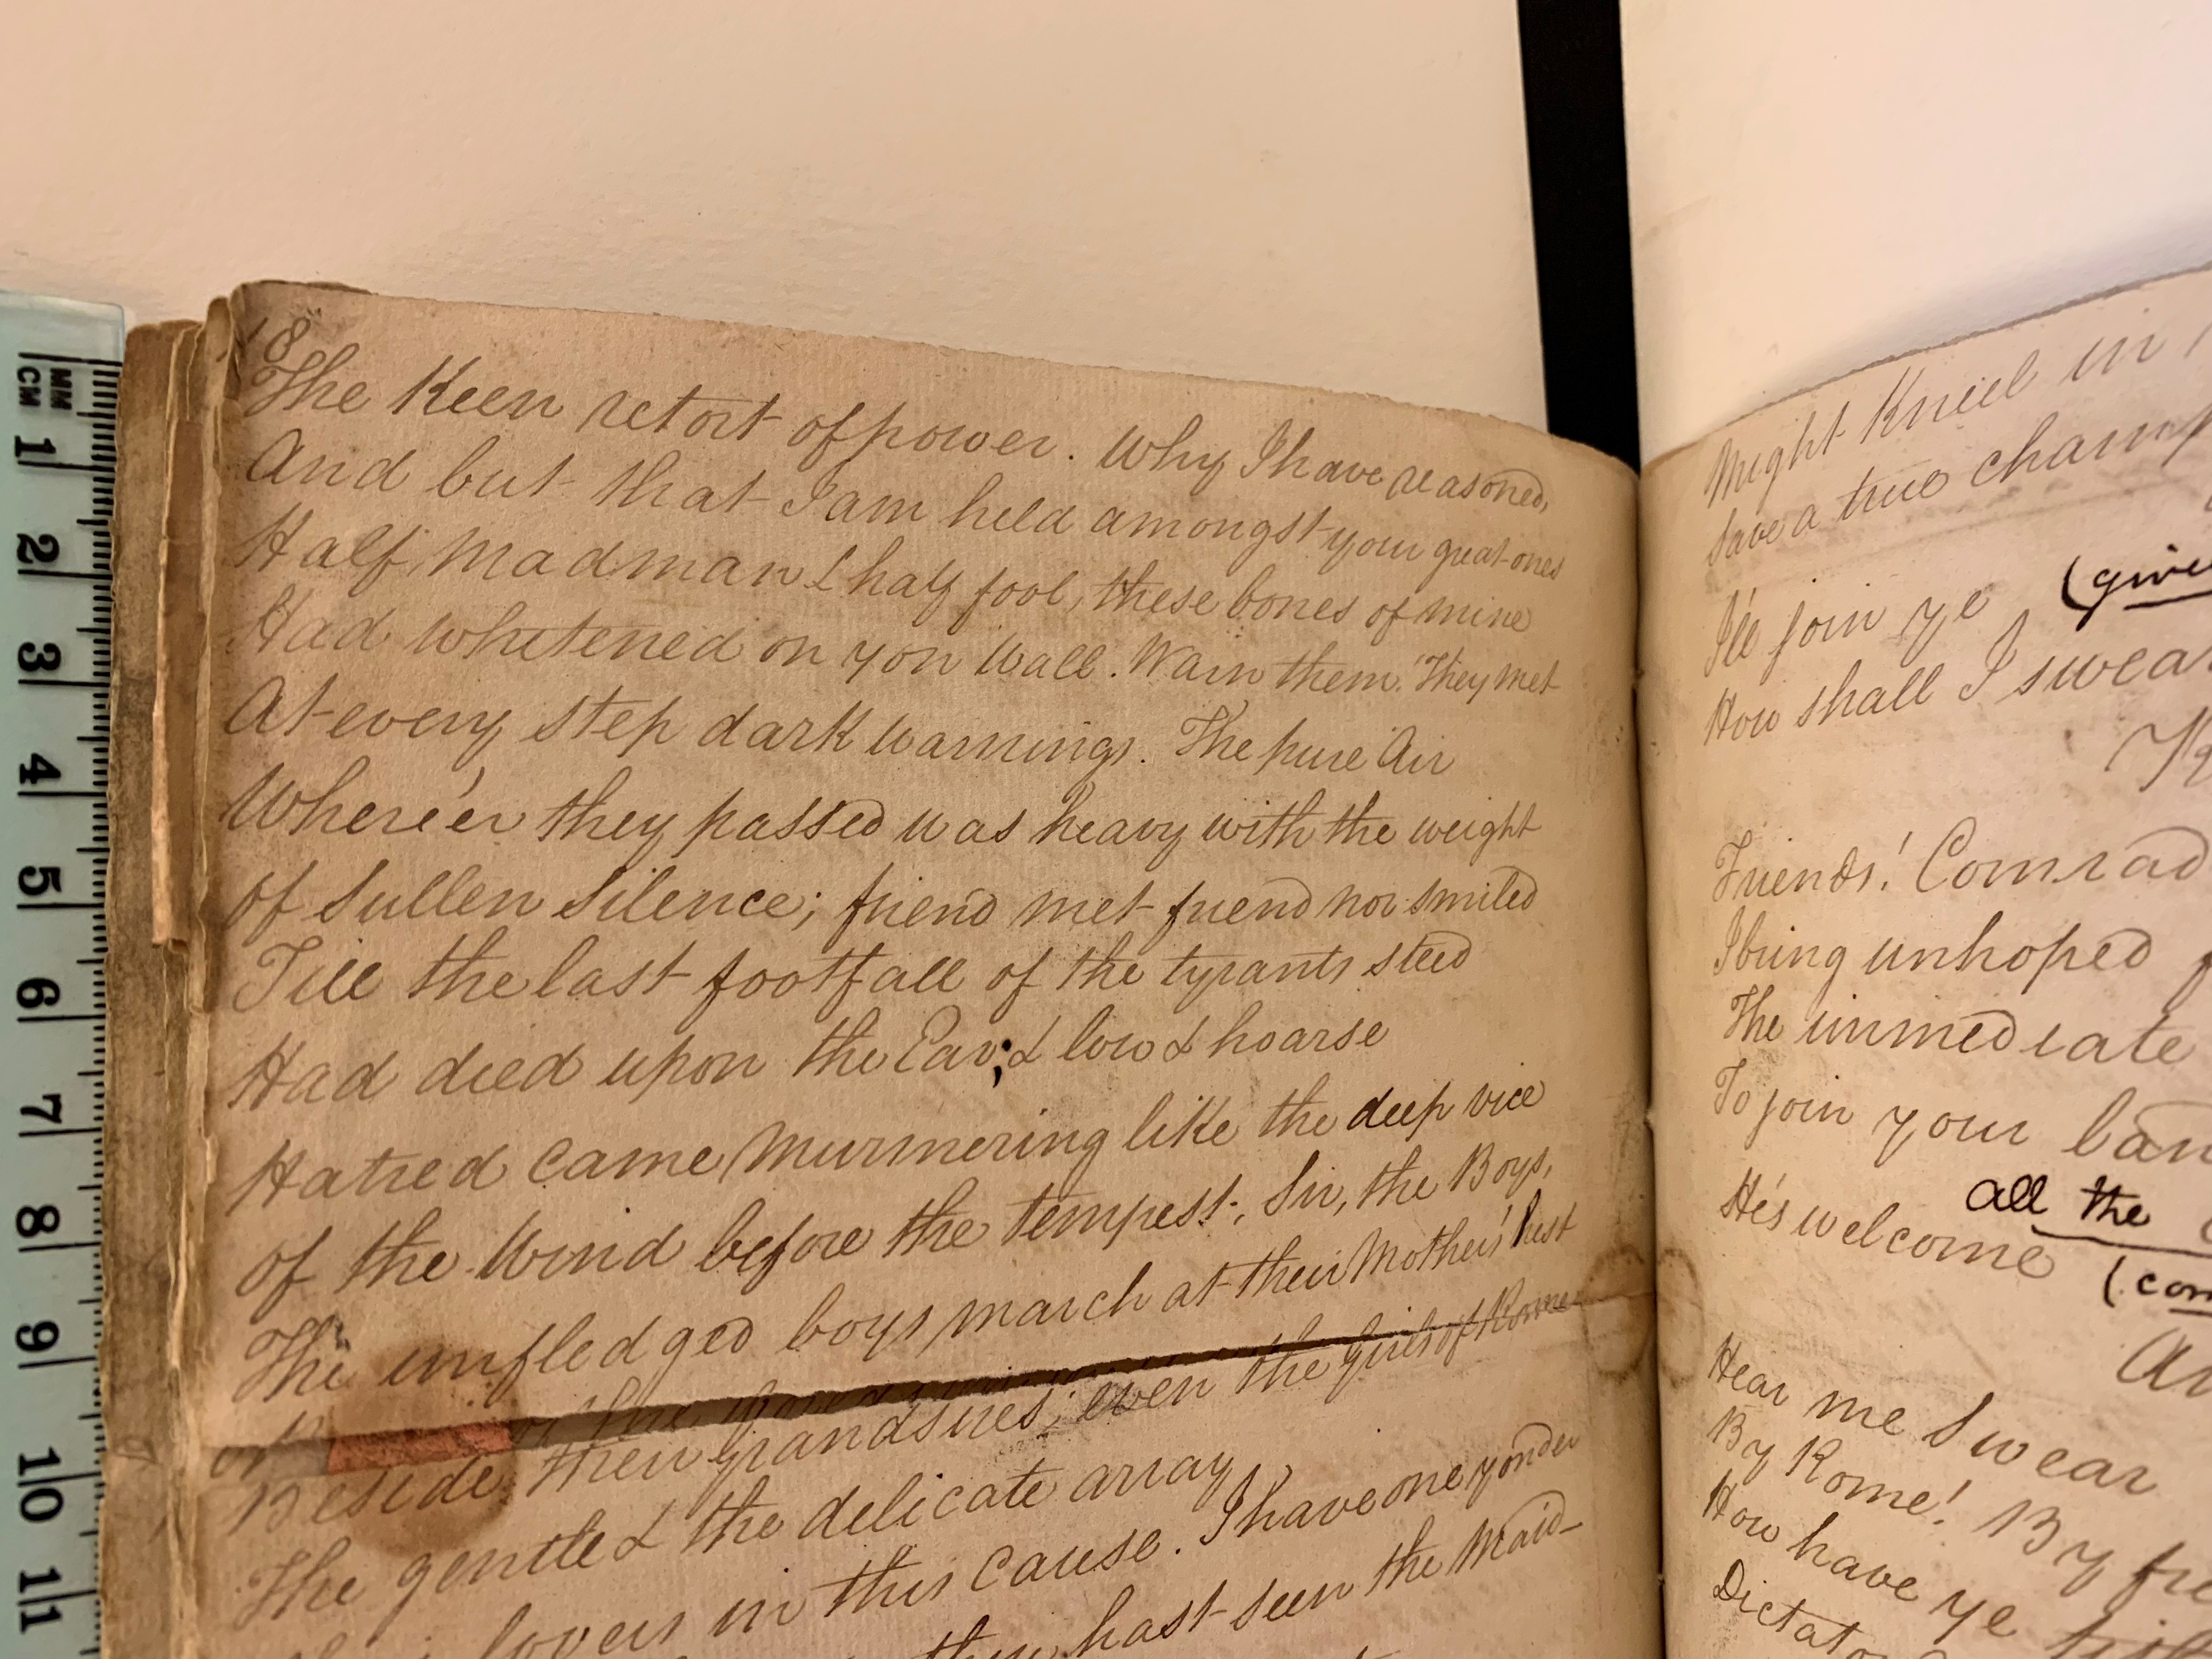 18
The Keen retort of power. Why I have reasoned,
And but that I am held amongst your great ones
Half Madman & half fool, these bones of mine
Had whitened on yon Wall. Warn them! They met
At every step dark warnings. The pure Air
Where'er they passed was heavy with the weight
of Sullen Silence; friend met friend nor smiled
Till the last footfall of the tyrants steed
Had died upon the Ear; & low & hoarse
Hatred came Murmering like the deep vice
of the Wind before the tempest; Sir, the Boys,
The unfledged boys march at their Mother's hest
Beside their grandsires; even the girls of Rome
The gentle & the delicate array
lovers in this Cause. I have one yonder
thou hast seen the Maid-
Might Kneel in
Save a true
I'll join ye (give
How shall I swear
Friends! Comrad
I bring unhoped
The immediate
To join your ban
all the
He's welcome (com
Hear me Swear
By Rome! By
How have ye
Dictator
MM
CM
1
2
3
4
5
6
7
8
9
10
11